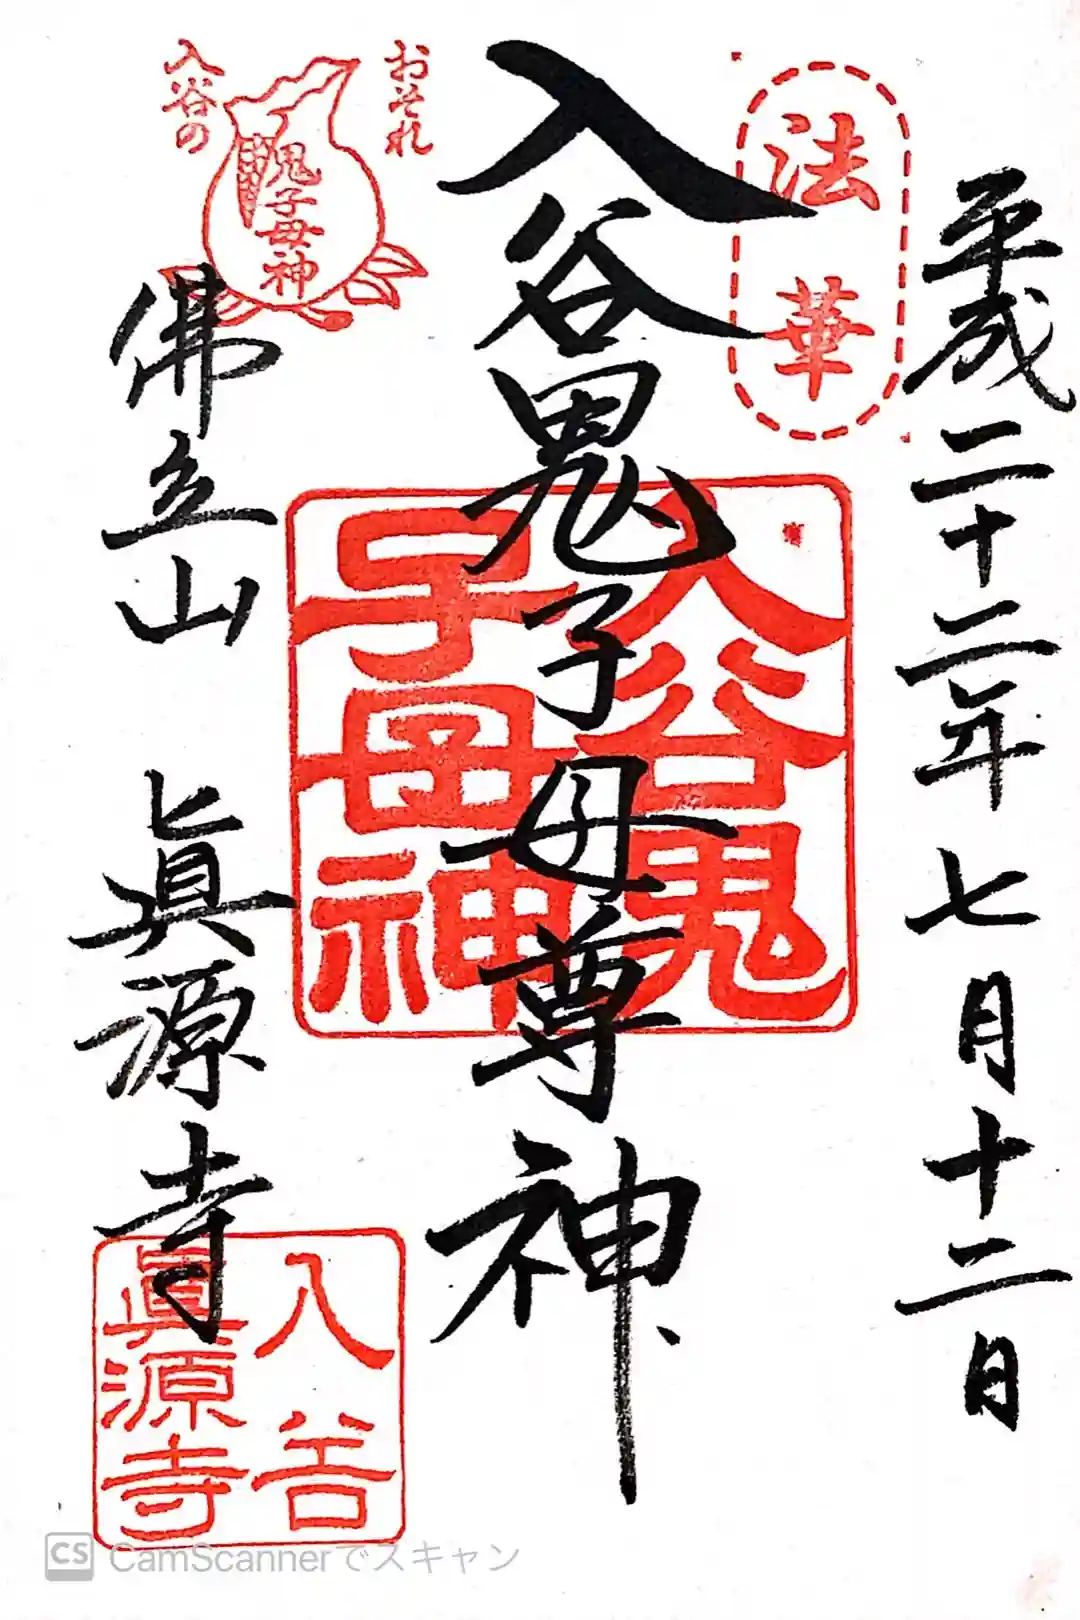 平成二十二年七月十二日
法華
入谷鬼子母尊神
入谷鬼
子母神
おそれ
入谷の
鬼子母神
佛立山 眞源寺
入谷
眞源寺
CS CamScannerでスキャン